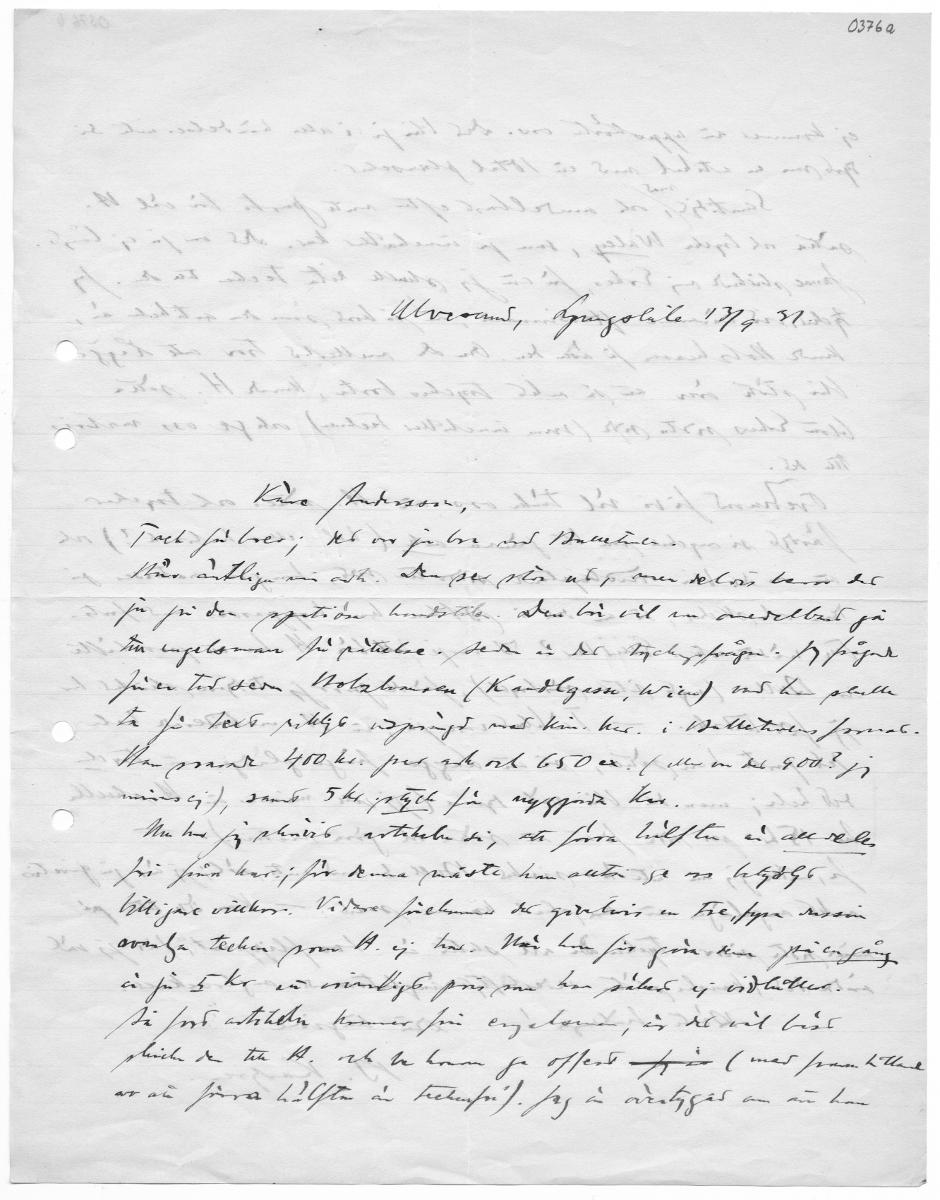 0376a
Ulvesund, Ljungskile 13/9 31
Käre Andersson,
Tack för brev; det var ju bra med Bulletinen
här äntligen min art. Den ser stor ut, men delvis beror det
ju på den spatiösa handstilen. Den bör väl nu omedelbart gå
till engelsman för rättelse. Sedan är det tryckfrågan. Jag frågade
för en tid sedan Holzhausen (Kandlgasse, Wien) vad han skulle
ta för text rikligt insprängd med kin. kar. i Bulletinens format.
Han svarade 400 kr. per ark och 650 ex. (eller var det 900? jag
minns ej), samt 5 kr. styck för nygjorda kar.
Nu har jag skrivit artikeln så, att förra hälften är alldeles
fri från kar.; för denna måste han alltså ge oss betydligt
billigare villkor. Vidare förekommer det givetvis en tre, fyra dussin
ovanliga tecken som H. ej har. När han får göra dem på en gång
är ju 5 kr ett orimligt pris som han säkert ej vidhåller.
Så fort artikeln kommer från engelsmannen, är det väl bäst
skicka den till H. och be honom ge offert (med framhållande
av att förra hälften är teckenfri). Jag är övertygad om att han